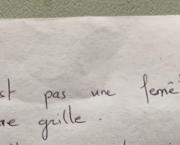 st pas une femê
re grille.